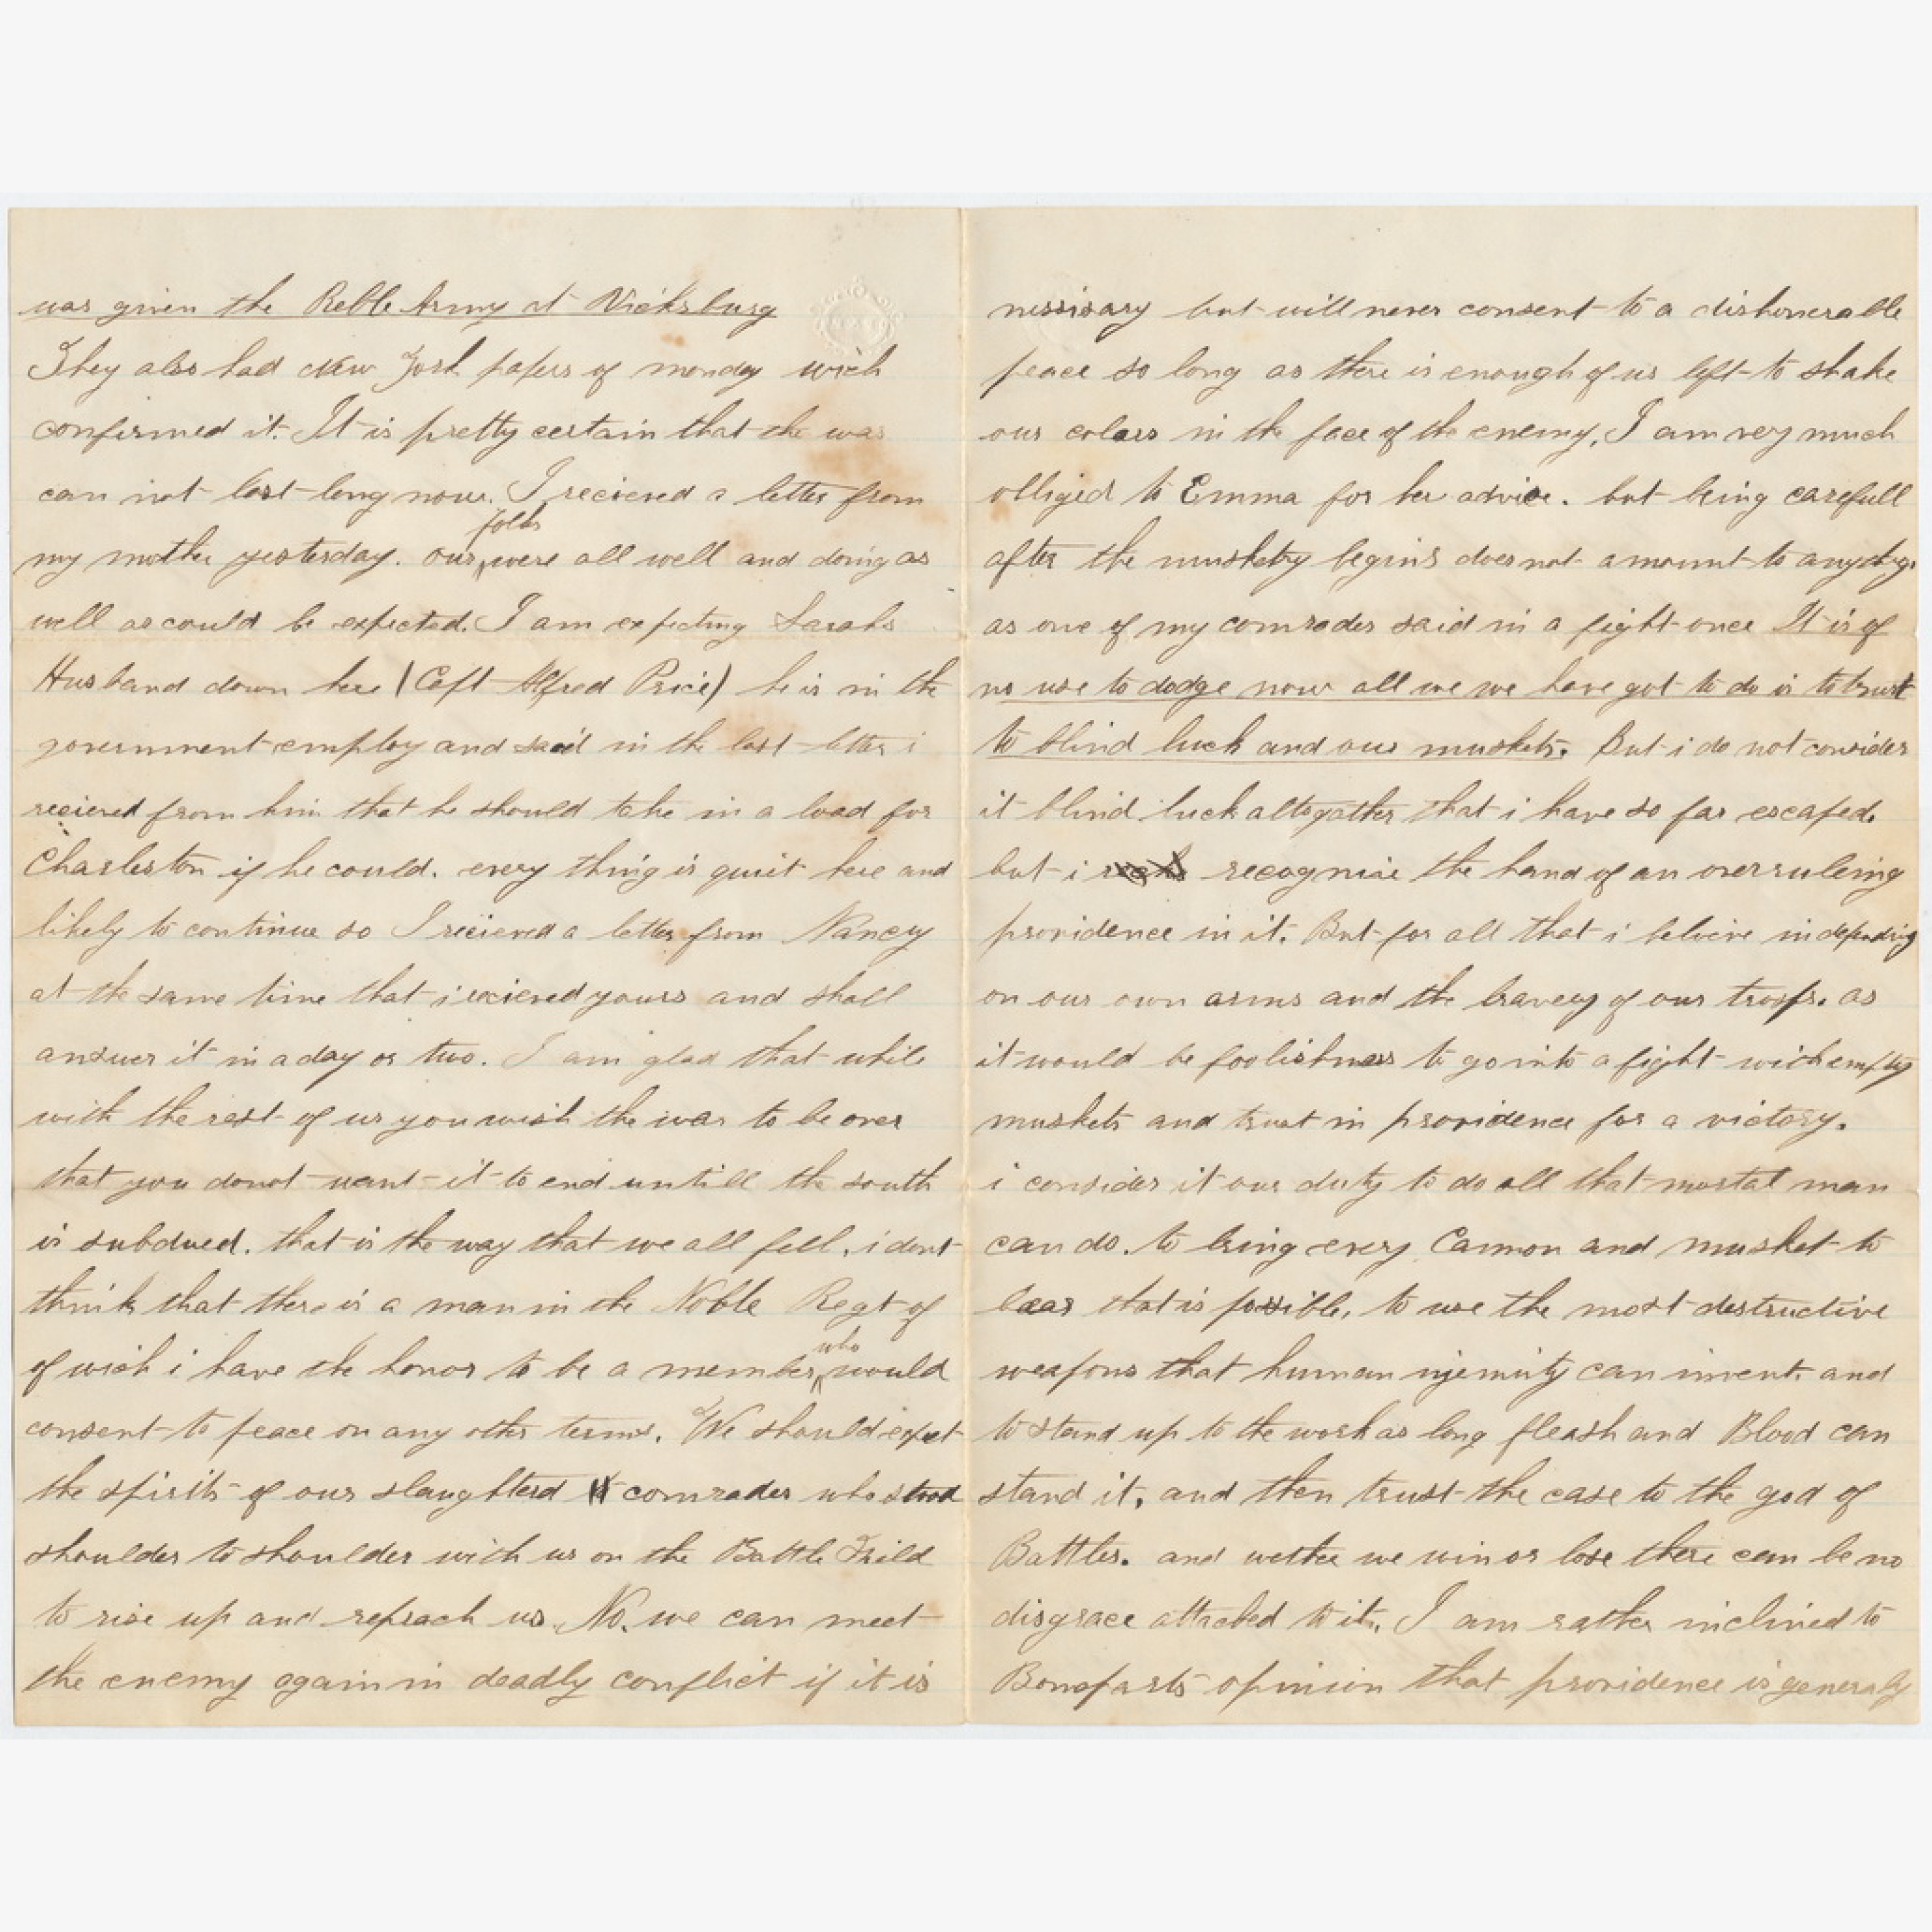 was given the Reble Army at Vicksburg
They also had New York papers of monday wich
confirmed it. It is pretty certain that the war
can not last long now. I recieved a letter from
folks
my mother yesterday. our were all well and doing as
well as could be expected. I am expecting Sarahs
Husband down here (Capt Alfred Price) he is in the
government employ and said in the last letter i
recieved from him that he should take in a load for
Charleston if he could. every thing is quiet here and
likely to continue so I recieved a letter from Nancy
at the same time that i recieved yours and shall
answer it in a day or two. I am glad that while
with the rest of us you wish the war to be over
that you do not want it to end untill the south
is subdued. that is the way that we all fell. i dont
think that there is a man in the Noble Regt of
who
of wich i have the honor to be a member would
consent to peace on any other terms. We should expect
the spirits of our slaughterd comrades who stood
shoulder to shoulder with us on the Battle Feild
to rise up and reproach us. No. we can meet
the enemy again in deadly conflict if it is
nessisary but will never consent to a dishonerable
peace so long as there is enough of us left to shake
our colors in the face of the enemy. I am very much
obliged to Emma for her advice. but being carefull
after the musketry begins does not amount to anything.
as one of my comrades said in a fight once It is of
no use to dodge now all we we have got to do is to trust
to blind luck and our muskets. But i do not consider
it blind luck altogather that i have so far escaped.
but i recognise the hand of an overruleing
providence in it. But for all that i beleive in depending
on our own arms and the bravery of our troops. as
it would be foolishness to go into a fight with empty
muskets and trust in providence for a victory.
i consider it our duty to do all that mortal man
can do. to bring every Cannon and musket to
bear that is possible, to use the most destructive
weapons that human injenuity can invent. and
to stand up to the work as long fleash and Blood can
stand it. and then trust the case to the god of
Battles. and wether we win or lose there can be no
disgrace attached to it. I am rather inclined to
Bonaparts opinion that providence is generaly